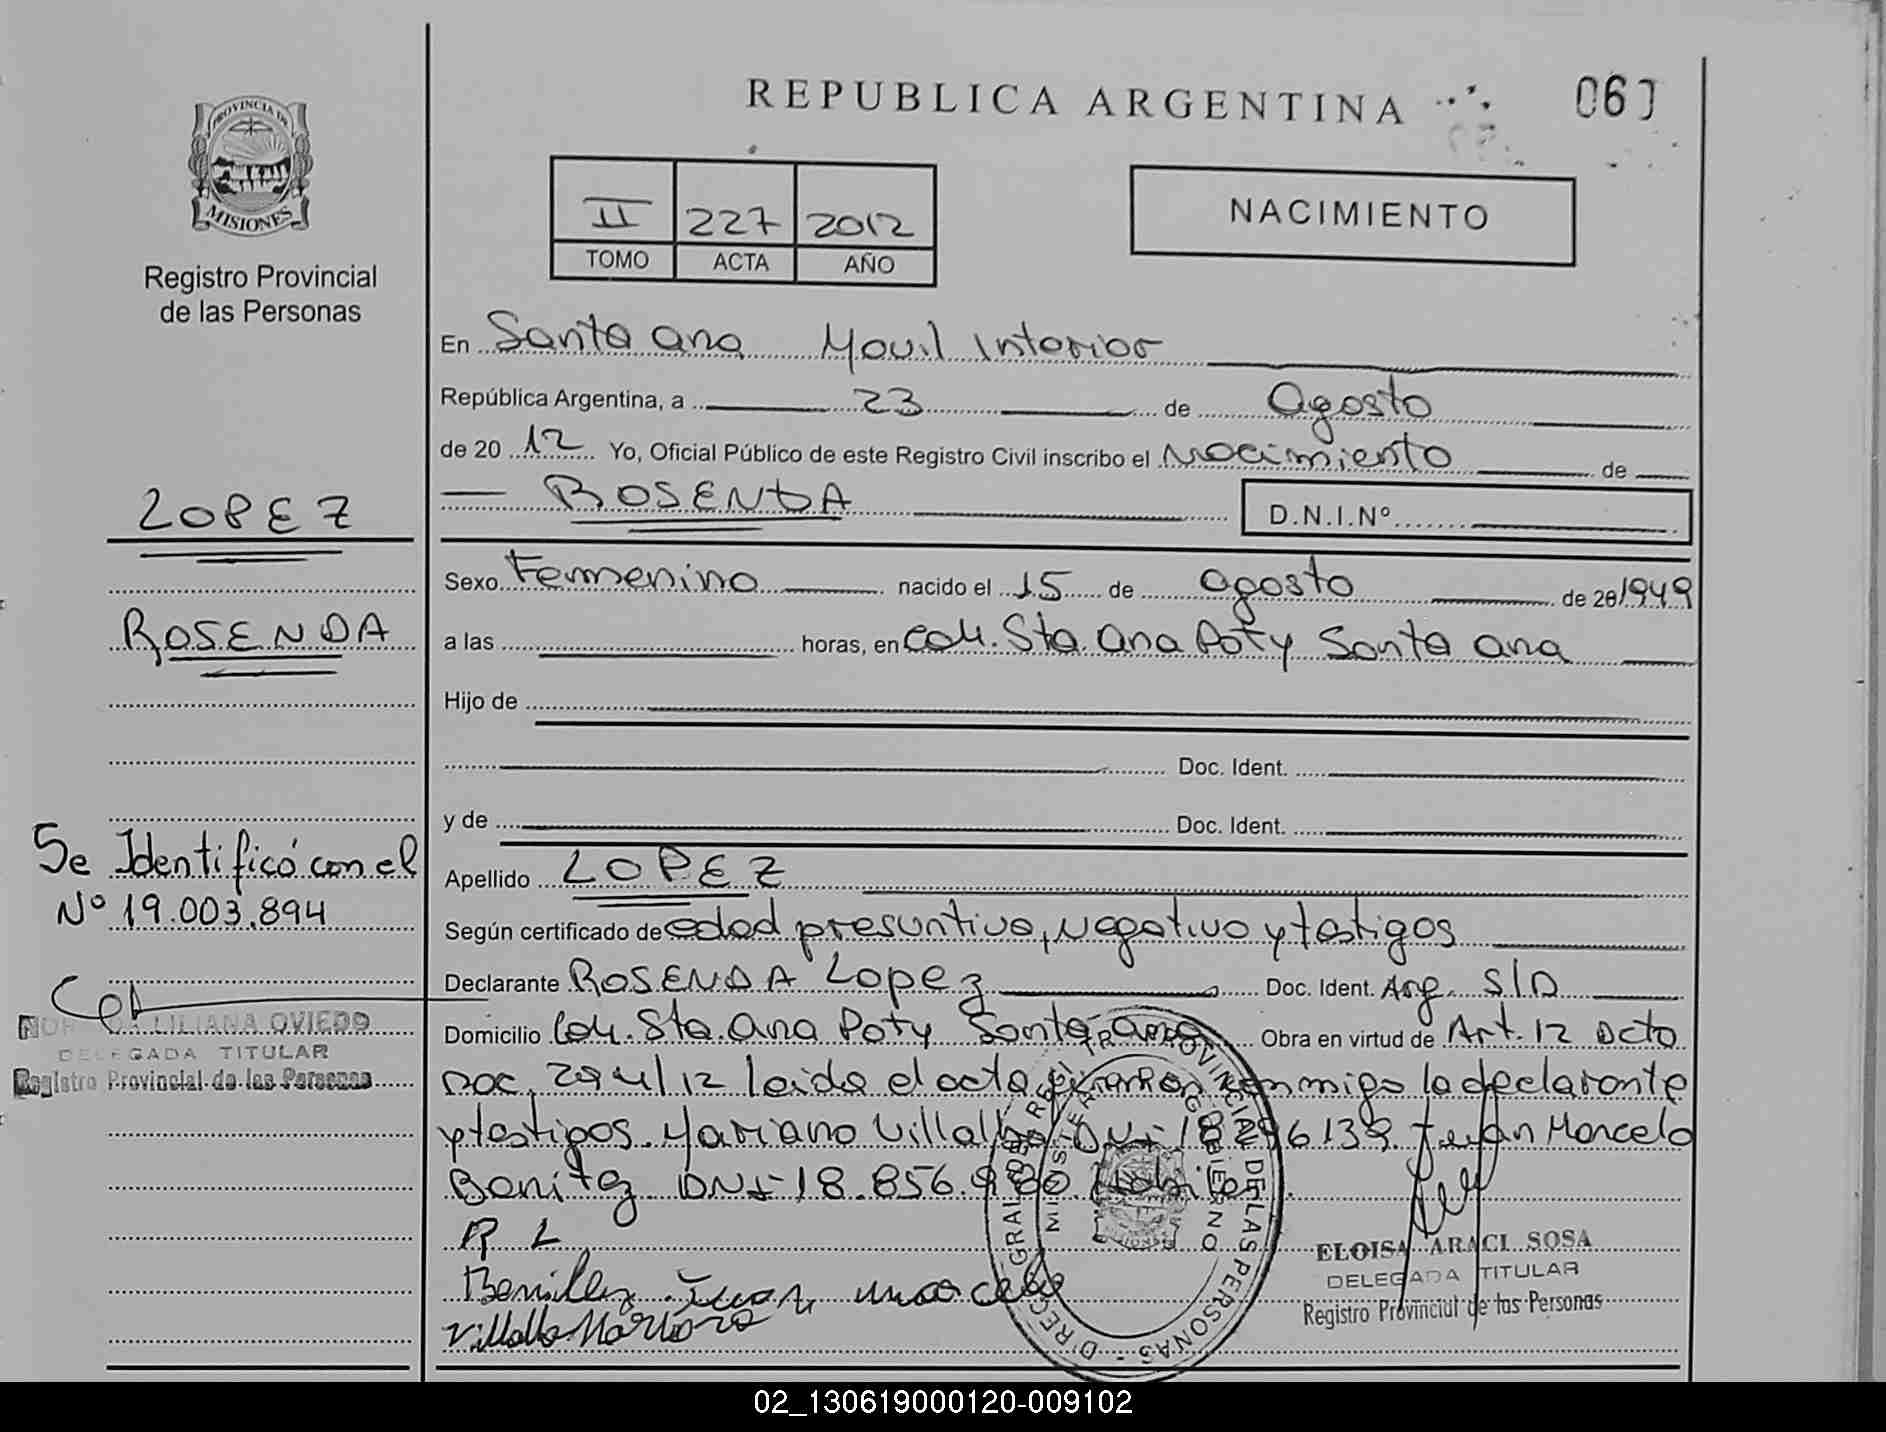 REPUBLICA ARGENTINA
060
PROVINCIA DE
MISIONES
Registro Provincial
de las Personas
II 227 2012
TOMO ACTA AÑO
NACIMIENTO
En Santa ana Movil Interior
República Argentina, a 23 de agosto
de 20 12 Yo, Oficial Público de este Registro Civil inscribo el Nacimiento de
ROSENDA
D.N.I.Nº
LOPEZ
ROSENDA
Sexo Femenino nacido el 15 de agosto de 20 1949
a las horas, en Col. Sta. Ana Poty Santa ana
Hijo de
Doc. Ident.
y de Doc. Ident.
Apellido LOPEZ
Según certificado de edad presuntivo, Negativo y testigos
Declarante ROSENDA Lopez Doc. Ident. Arg. S/D
Domicilio Col. Sta. Ana Poty Santa ana Obra en virtud de Art. 12 Dcto
Doc, 294/12 leida el acta firman conmigo la declarante
y testigos. Mariano Villalba DNI 18 Juan Marcelo
Benitez DNI 18.856.980
R L
Benitez Juan marcelo
Villalba Mariano
Se Identificó con el
Nº 19.003.894
LILIANA OVIEDO
DELEGADA TITULAR
Registro Provincial de las Personas
ELOISA ARACI SOSA
DELEGADA TITULAR
Registro Provincial de las Personas
02_130619000120-009102